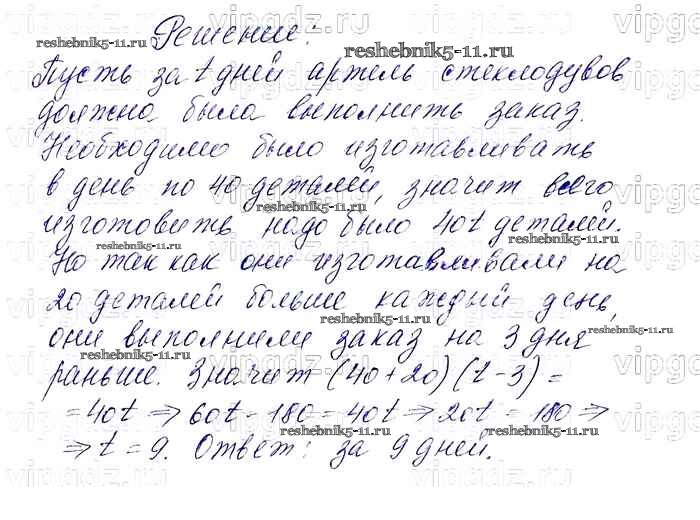 Решение:
Пусть за t дней артель стеклодувов
должна была выполнить заказ.
Необходимо было изготавливать
в день по 40 деталей, значит всего
изготовить надо было 40t деталей.
Но так как они изготавливали на
20 деталей больше каждый день,
они выполнили заказ на 3 дня
раньше. Значит (40+20)(t-3)=
=40t ⇒ 60t-180=40t ⇒ 20t=180 ⇒
⇒ t=9. Ответ: за 9 дней.
reshebnik5-11.ru
reshebnik5-11.ru
reshebnik5-11.ru
reshebnik5-11.ru
reshebnik5-11.ru
reshebnik5-11.ru
reshebnik5-11.ru
reshebnik5-11.ru
reshebnik5-11.ru
reshebnik5-11.ru
reshebnik5-11.ru
vipgdz.ru